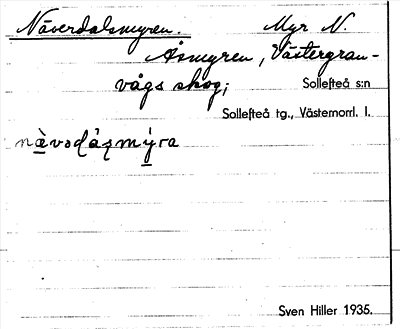 Näverdalsmyren. Myr N.
Åsmyren, Västergran-
vågs skog; Sollefteå s:n
Sollefteå tg., Västernorrl. l.
nä̀vədáʂmýra
Sven Hiller 1935.